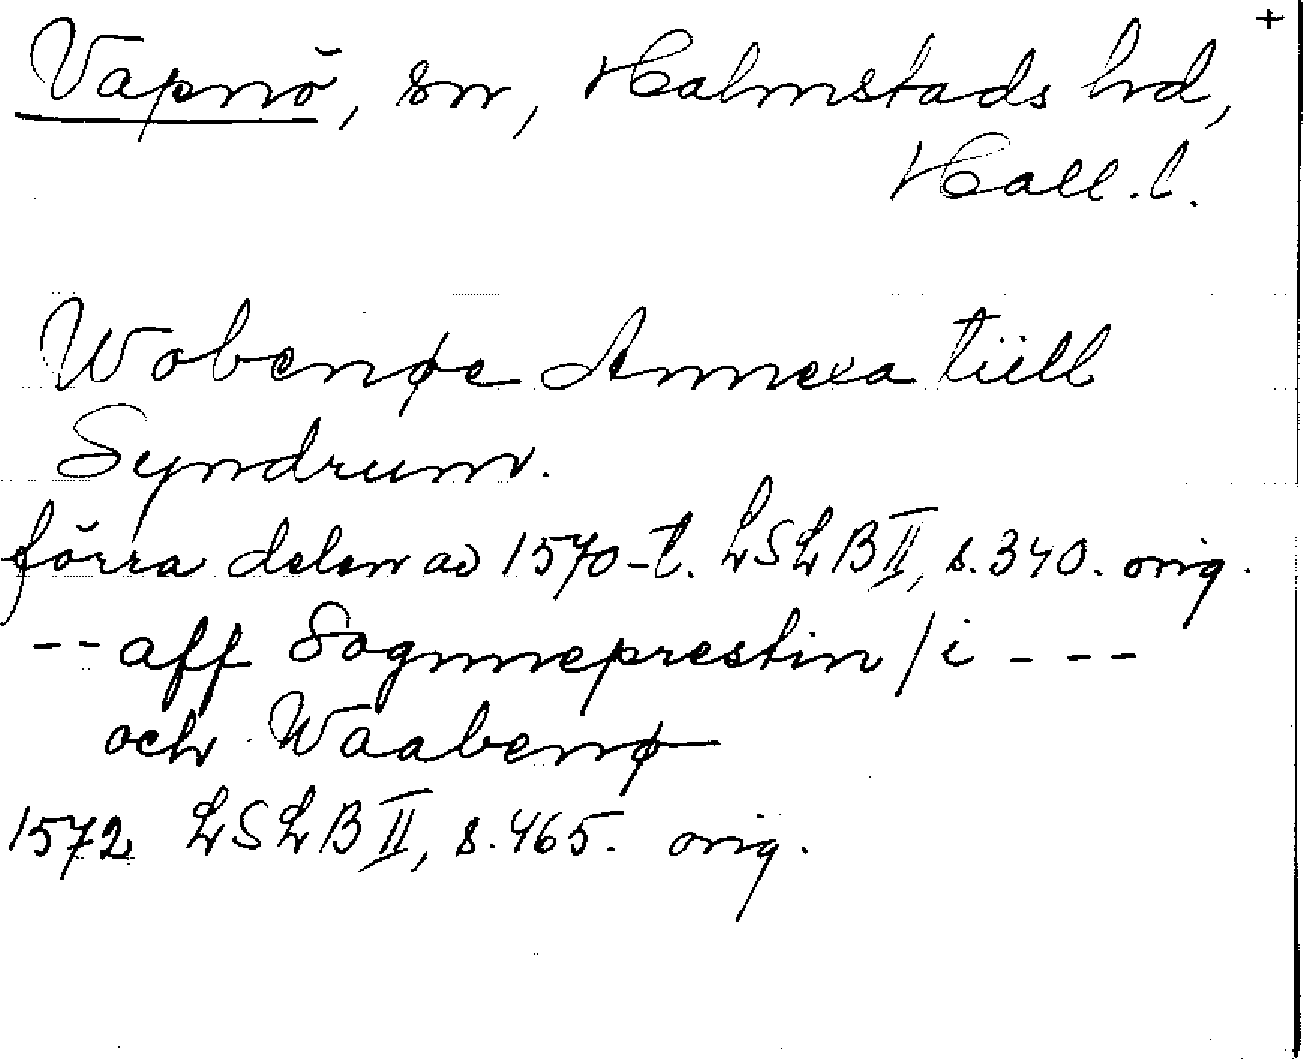 +
Vapnö, sn, Halmstads hd,
Hall. l.
Wobenøe Annexa tiill
Syndrum.
förra delen av 1570-t. LSLB II, s. 340. orig.
-- aff Sognneprestin / i ---
och Waabenø
1572 LSLB II, s. 465. orig.